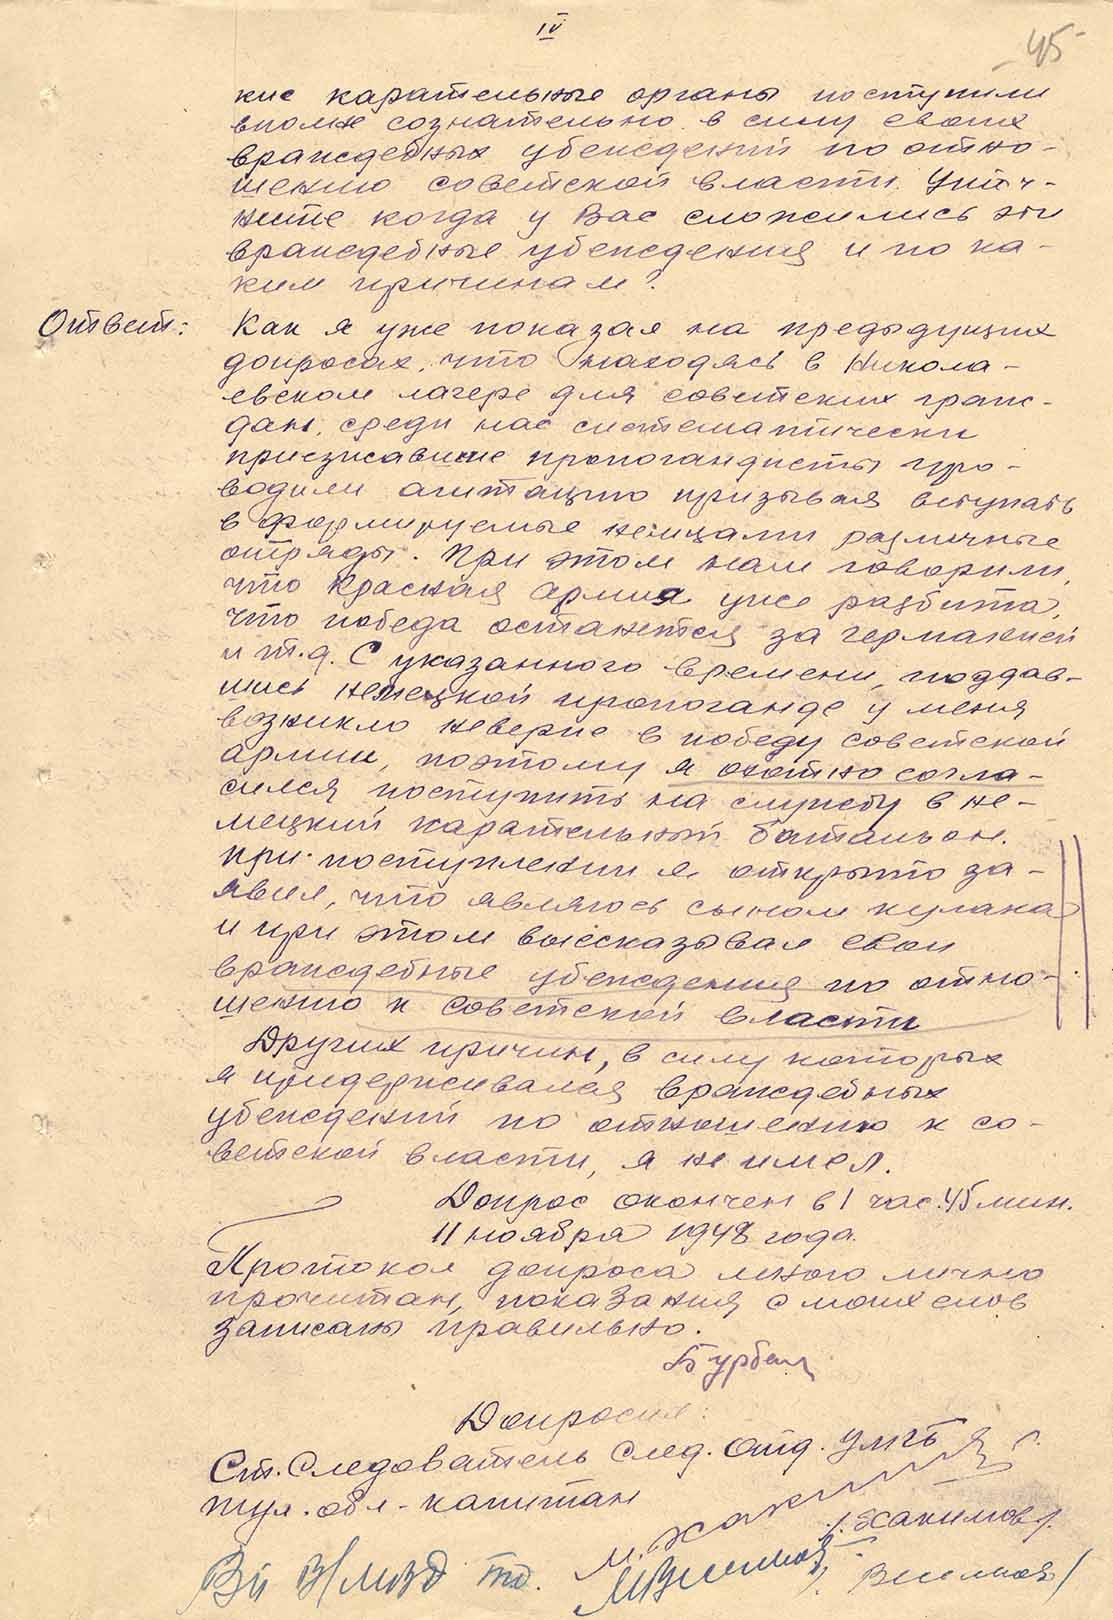 IV
45
кие карательные органы поступили
вполне сознательно в силу своих
враждебных убеждений по отно-
шению советской власти. Уточ-
ните когда у Вас сложились эти
враждебные убеждения и по ка-
ким причинам?
Ответ: Как я уже показал на предыдущих
допросах, что находясь в Никола-
евском лагере для советских граж-
дан, среди нас систематически
приезжавшие пропогандисты про-
водили агитацию призывая вступать
в формируемые немцами различные
отряды. При этом нам говорили,
что Красная армия уже разбита,
что победа останется за германией
и т.д. С указанного времени, поддав-
шись немецкой пропоганде у меня
возникло неверие в победу советской
армии, поэтому я охотно согла-
сился поступить на службу в не-
мецкий карательный батальон.
При поступлении я открыто за-
явил, что являюсь сыном кулака
и при этом высказывал свои
враждебные убеждения по отно-
шению к советской власти
Других причин, в силу которых
я придерживался враждебных
убеждений по отношению к со-
ветской власти, я не имел.
Допрос окончен в 1 час.45 мин.
11 ноября 1948 года.
Протокол допроса мною лично
прочитан, показания с моих слов
записаны правильно.
Допросил:
Ст. Следователь След. Отд. УМГБ
тул. обл - капитан
/. Хакимов /.